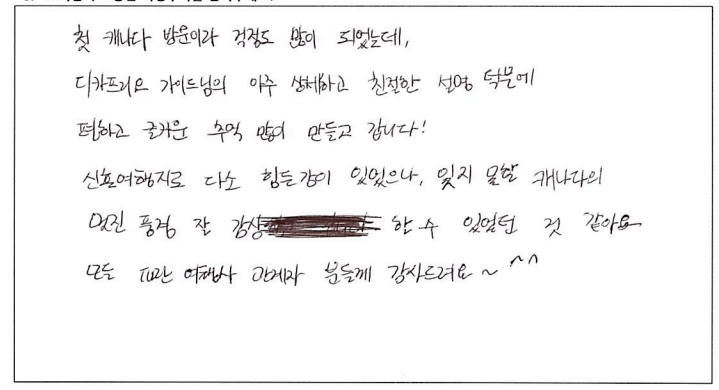 첫 캐나다 방문이라 걱정도 많이 되었는데,
디카프리오 가이드님의 아주 상세하고 친절한 설명 덕분에
편하고 즐거운 추억 많이 만들고 갑니다!
신혼여행지로 다소 힘든감이 있었으나, 잊지 못할 캐나다의
멋진 풍경 잘 감상 할 수 있었던 것 같아요
모든 파란 여행사 관계자 분들께 감사드려요~ ^^